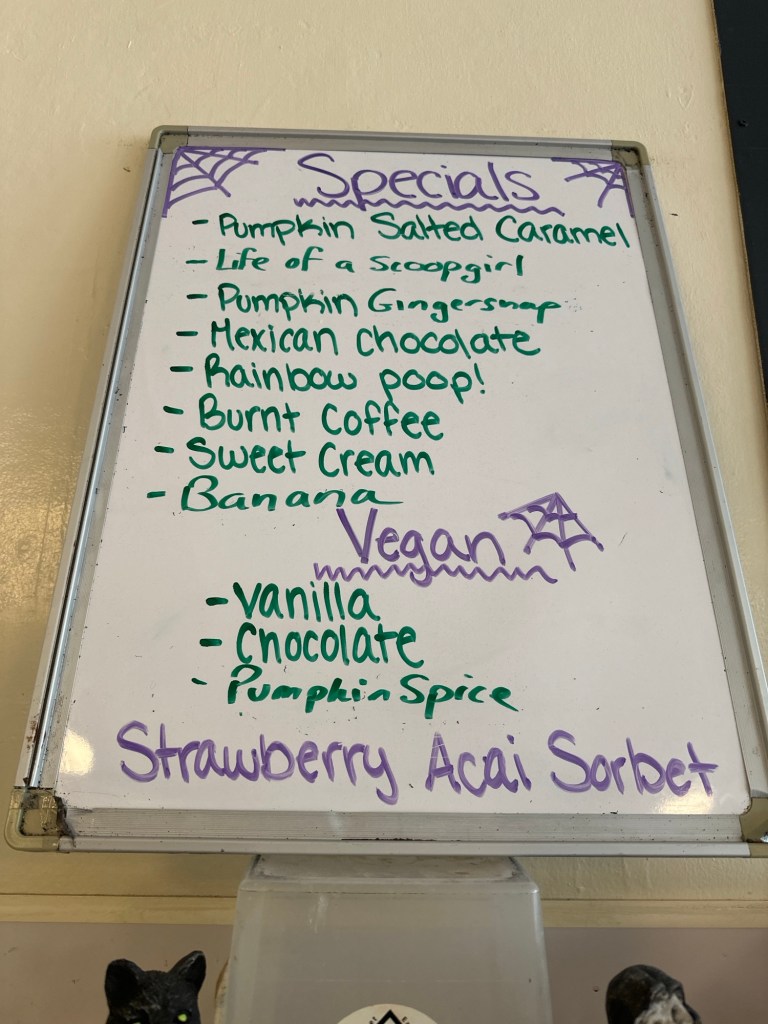 Specials
- Pumpkin Salted Caramel
- Life of a scoopgirl
- Pumpkin Gingersnap
- Mexican chocolate
- Rainbow poop!
- Burnt Coffee
- Sweet Cream
- Banana
Vegan
- Vanilla
- Chocolate
- Pumpkin Spice
Strawberry Acai Sorbet